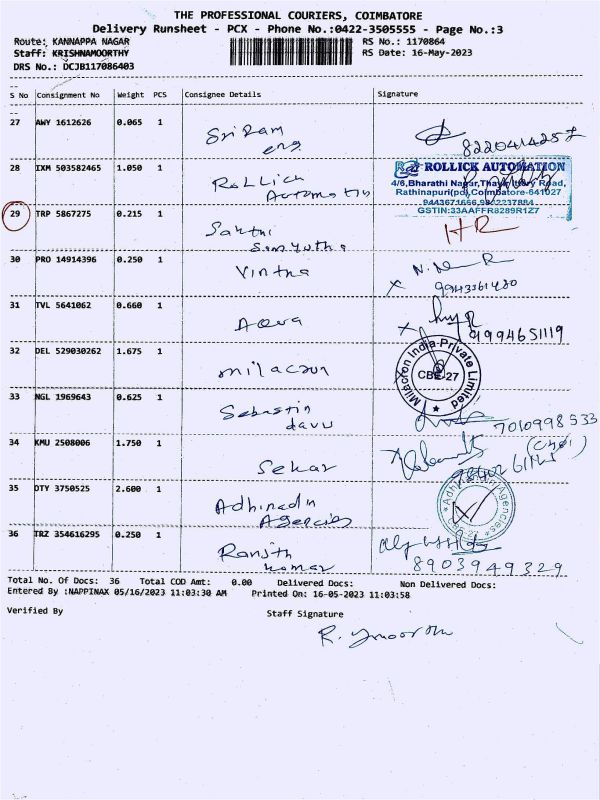 THE PROFESSIONAL COURIERS, COIMBATORE
Delivery Runsheet - PCX - Phone No.:0422-3505555 - Page No.:3
Route: KANNAPPA NAGAR
RS No.: 1170864
Staff: KRISHNAMOORTHY
RS Date: 16-May-2023
DRS No.: DCJB117086403
S No Consignment No Weight PCS Consignee Details Signature
27 AWY 1612626 0.065 1 Sriram
eng 8220414257
28 IXM 503582465 1.050 1 Rollick
Automatin
ROLLICK AUTOMATION
4/6,Bharathi Nagar, Road,
Rathinapuri(po),Coimbatore-641027
9443671666,9842237884
GSTIN:33AAFFR8289R1Z7
29 TRP 5867275 0.215 1 Sakthi
Samyutha HR
30 PRO 14914396 0.250 1 Vintha
31 TVL 5641062 0.660 1 Aqua 9994651119
32 DEL 529030262 1.675 1 milacron
Milacron India Private Limited
CBE-27
33 NGL 1969643 0.625 1 Sebastin
7010998533
34 KMU 2508006 1.750 1 Sekar
35 DTY 3750525 2.600 1 Adhinadin
Agencies
36 TRZ 354616295 0.250 1 Ranjith
kumar 8903949329
Total No. Of Docs: 36 Total COD Amt: 0.00 Delivered Docs: Non Delivered Docs:
Entered By :NAPPINAX 05/16/2023 11:03:30 AM Printed On: 16-05-2023 11:03:58
Verified By Staff Signature